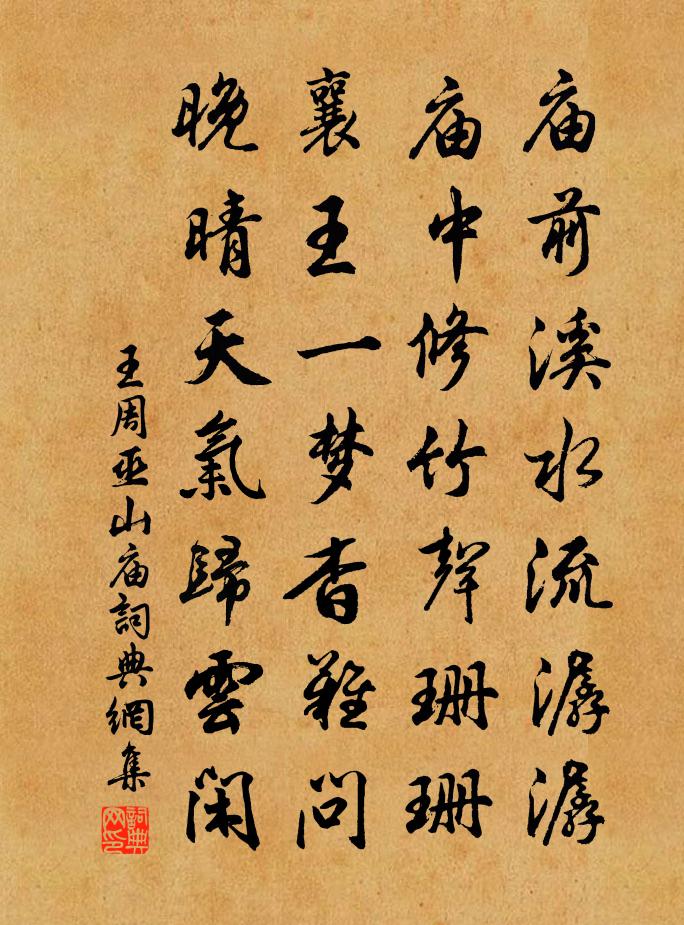 庙前溪水流潺潺
庙中修竹聲珊珊
襄王一梦杳難问
晚晴天氣歸雲闲
王周巫山庙詞典網集
詞典网印